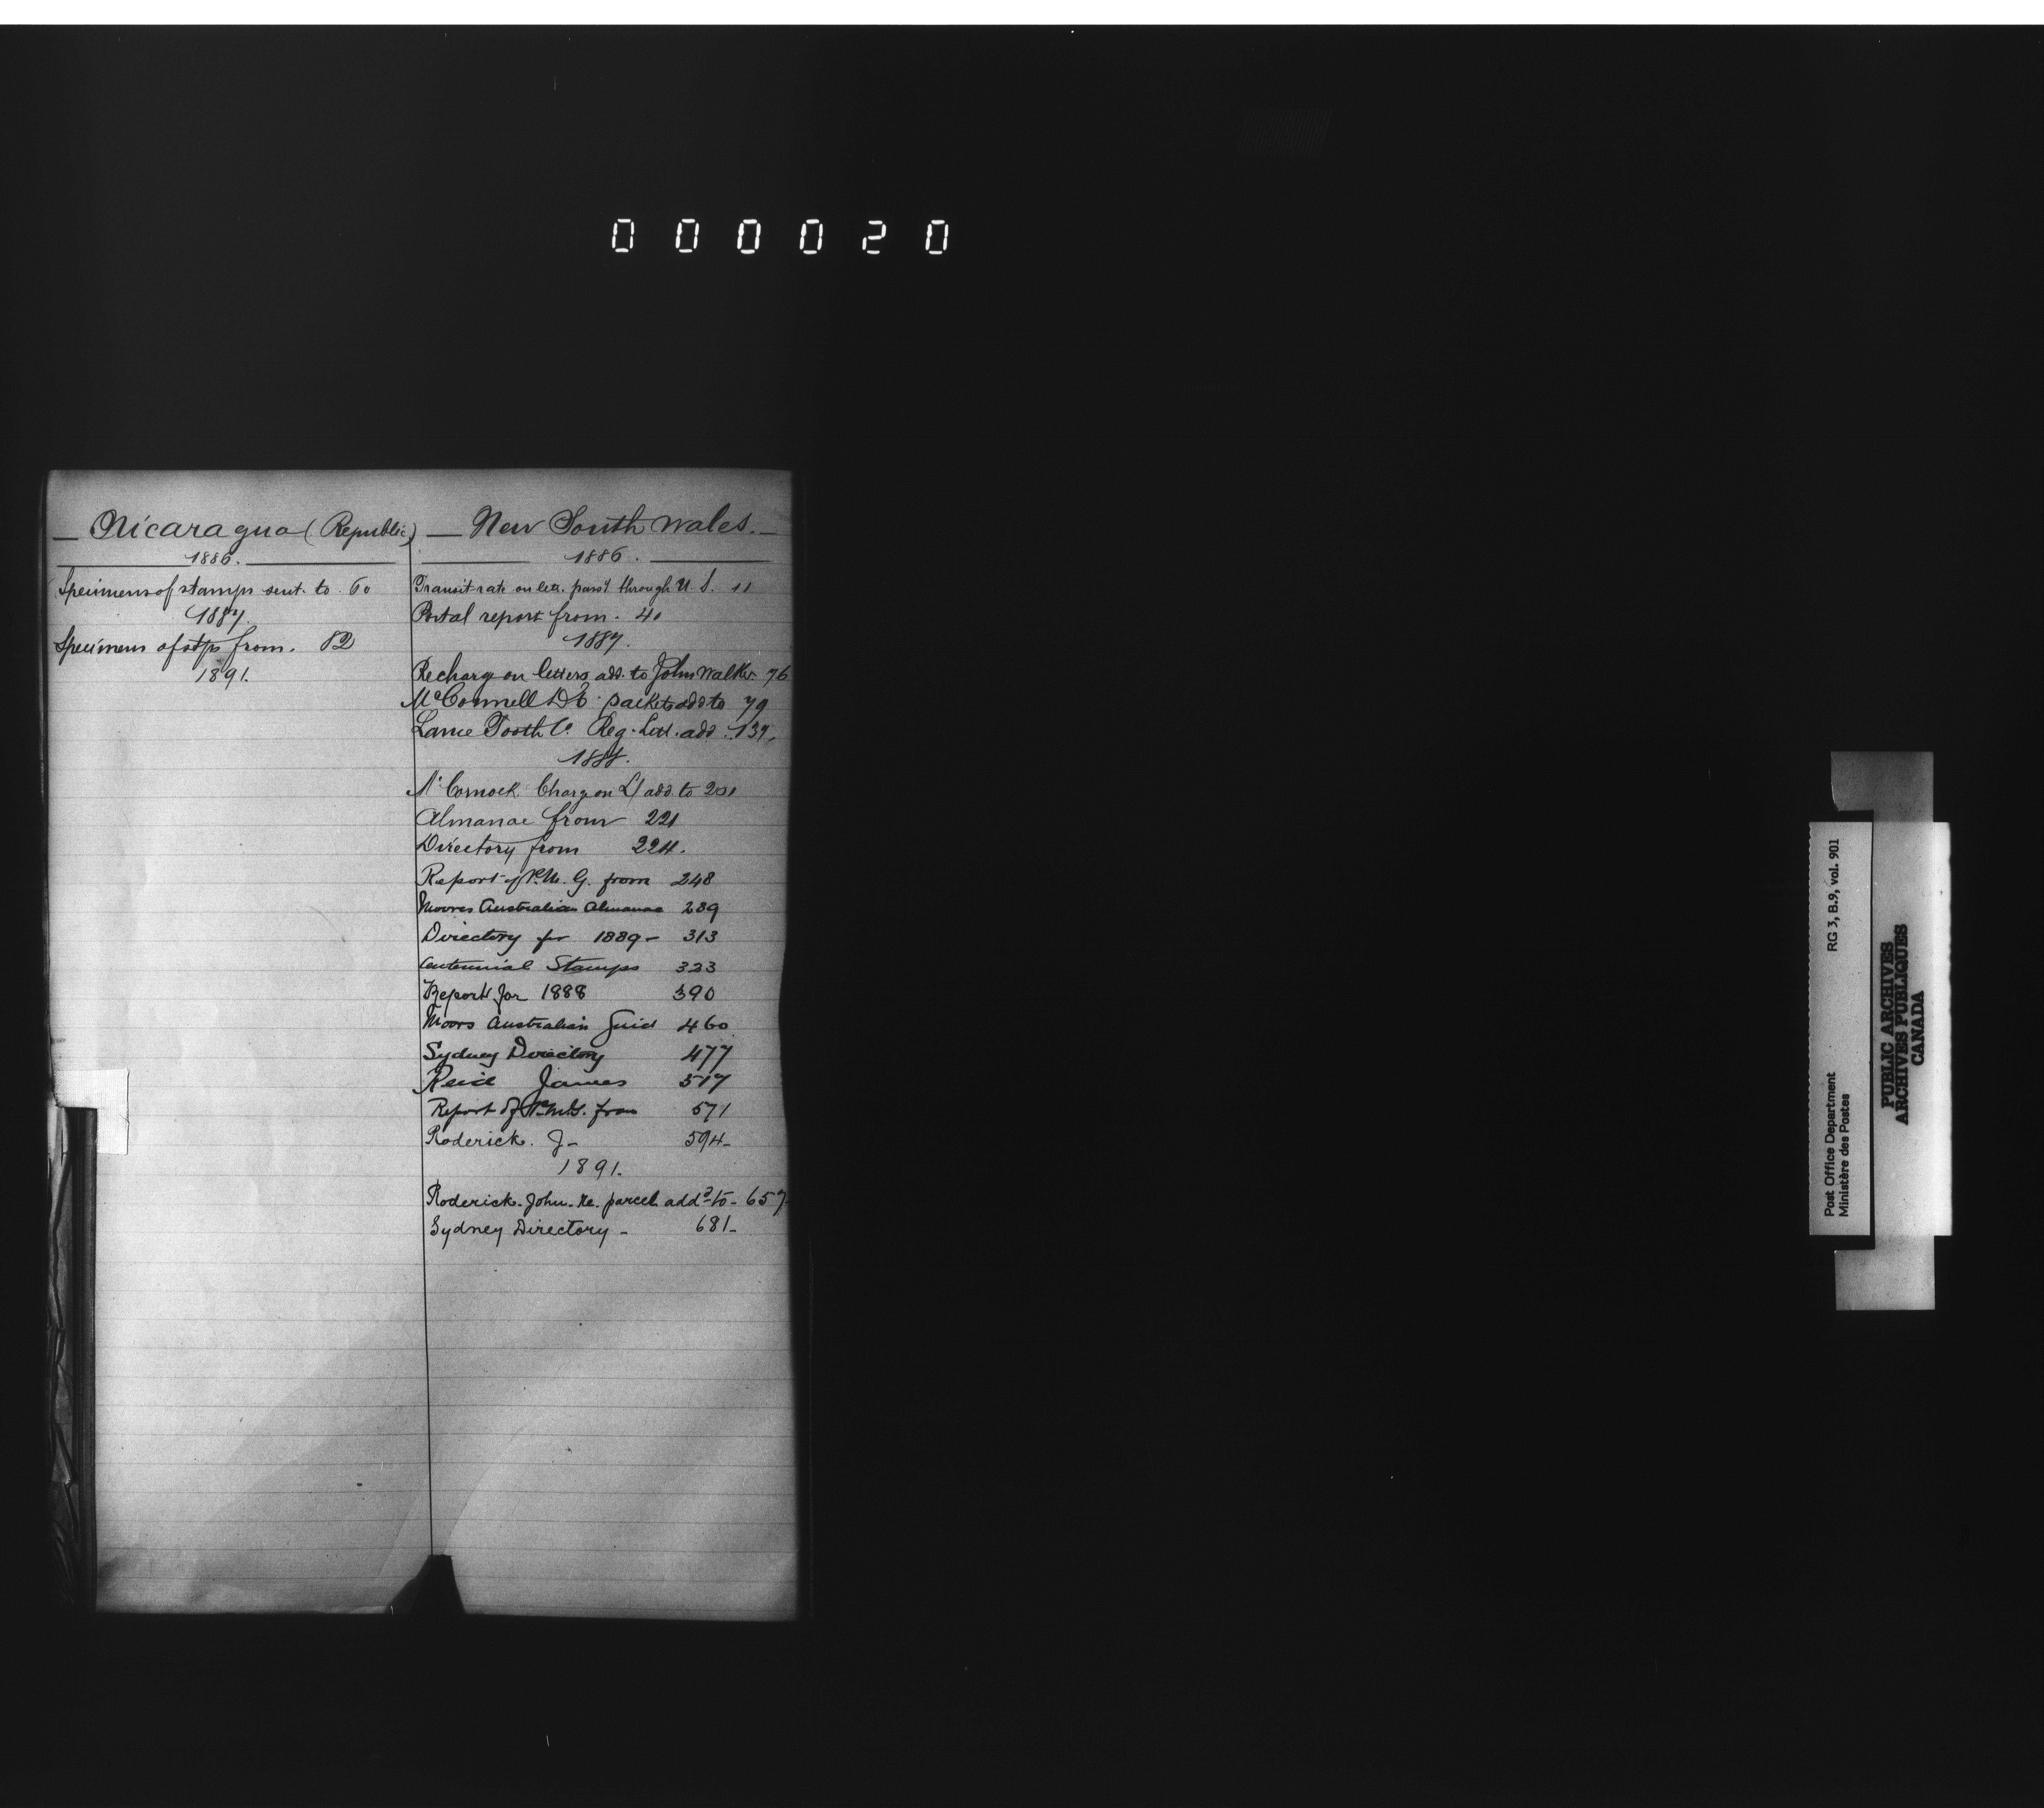 000020
Nicaragua (Republic)
1886.
Specimens of stamps sent. to. 60
1887.
Specimens of stps from. 82
1891.
New South Wales.
1886.
Transit rate on lett. pass'g through U. S. 11
Postal report from. 40
1887.
Recharge on letters add. to John Walker 76
McConnell packet add to 79
Tooth Co Reg. Lett. add. 137.
1888.
Charge on L/ add. to 201
Almanac from 221
Directory from 224.
Report of P.M.G. from 248
Moores Australian Almanac 289
Directory for 1889 - 313
Centennial Stamps 323
Report for 1888 390
Moors Australian Guid 460
Sydney Directory 477
Reid James 517
Report of P.M.G. from 571
Roderick. J - 594 -
1891.
Roderick. John. Re. parcel add d to - 657 -
Sydney Directory - 681 -
RG 3, B.9, vol. 901
Post Office Department
Ministère des Postes
PUBLIC ARCHIVES
ARCHIVES PUBLIQUES
CANADA